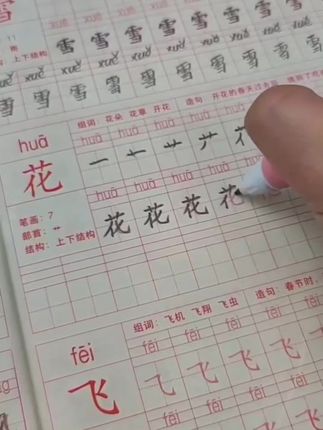 雪 xuě xuě xuě xuě xuě
11 雪 雪 雪 雪 雪 雪
雨 xuě xuě xuě xuě xuě xuě
上下结构 雪 雪 雪 雪 雪 雪 雪 雪
huā 组词：花朵 花草 开花 造句：开花的春天过
huā huā huā huā huā
花 一 十 艹
huā huā huā huā huā
笔画：7 花 花 花 花
部首：艹
结构：上下结构
fēi 组词：飞机 飞翔 飞虫 造句：春节时，
fēi fēi fēi fēi fēi
飞 飞 飞 飞 飞
fēi fēi fēi